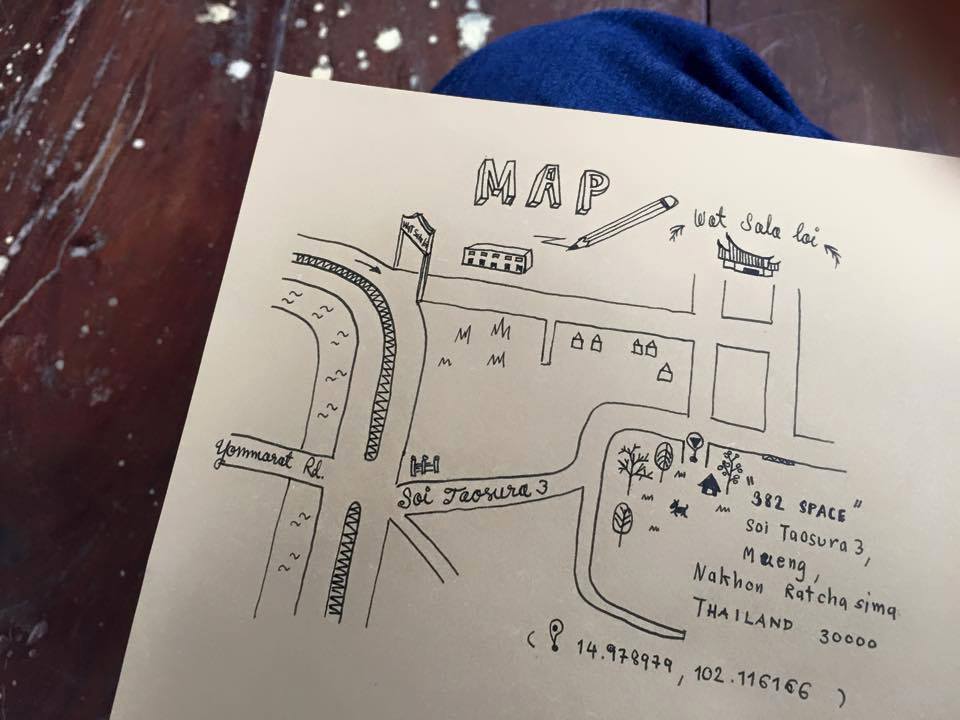 MAP
Wat Sala loi
Wat Sala loi
Yommarat Rd.
Soi Taosura 3
"382 SPACE"
Soi Taosura 3,
Mueng,
Nakhon Ratchasima
THAILAND 30000
( 14.978979, 102.116166 )